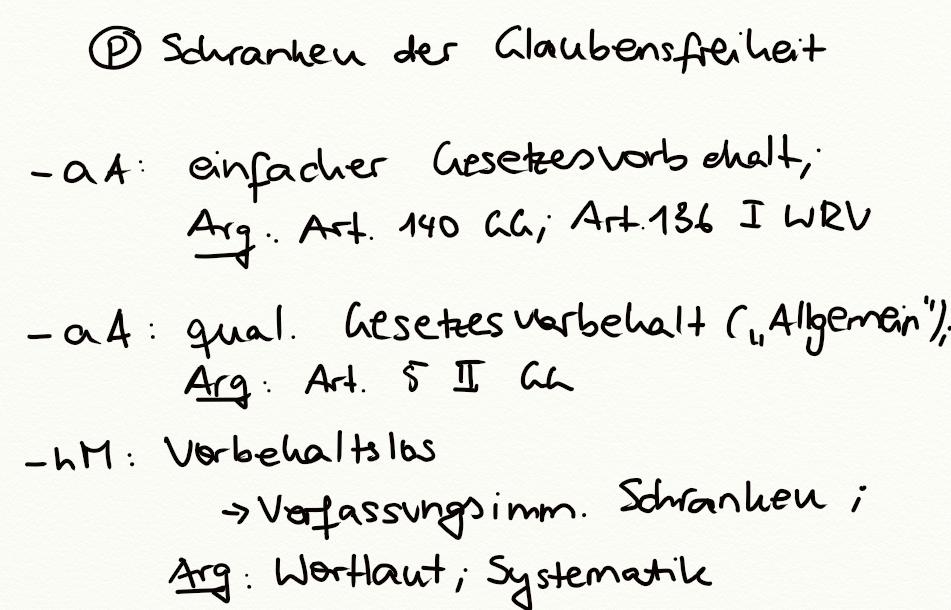 Ⓟ Schranken der Glaubensfreiheit
- aA: einfacher Gesetzesvorbehalt;
Arg.: Art. 140 GG; Art. 136 I WRV
- aA: qual. Gesetzesvorbehalt („Allgemein“);
Arg: Art. 5 II GG
- hM: Vorbehaltslos
→ Verfassungsimm. Schranken;
Arg: Wortlaut; Systematik